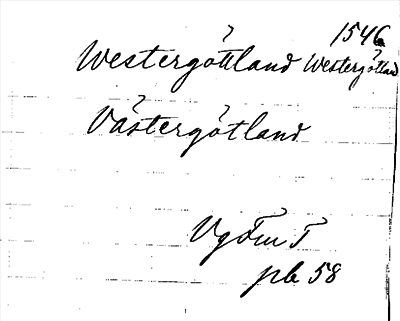 1546
Westergöttland Westergötland
Västergötland
Vg Fm T
pb 58